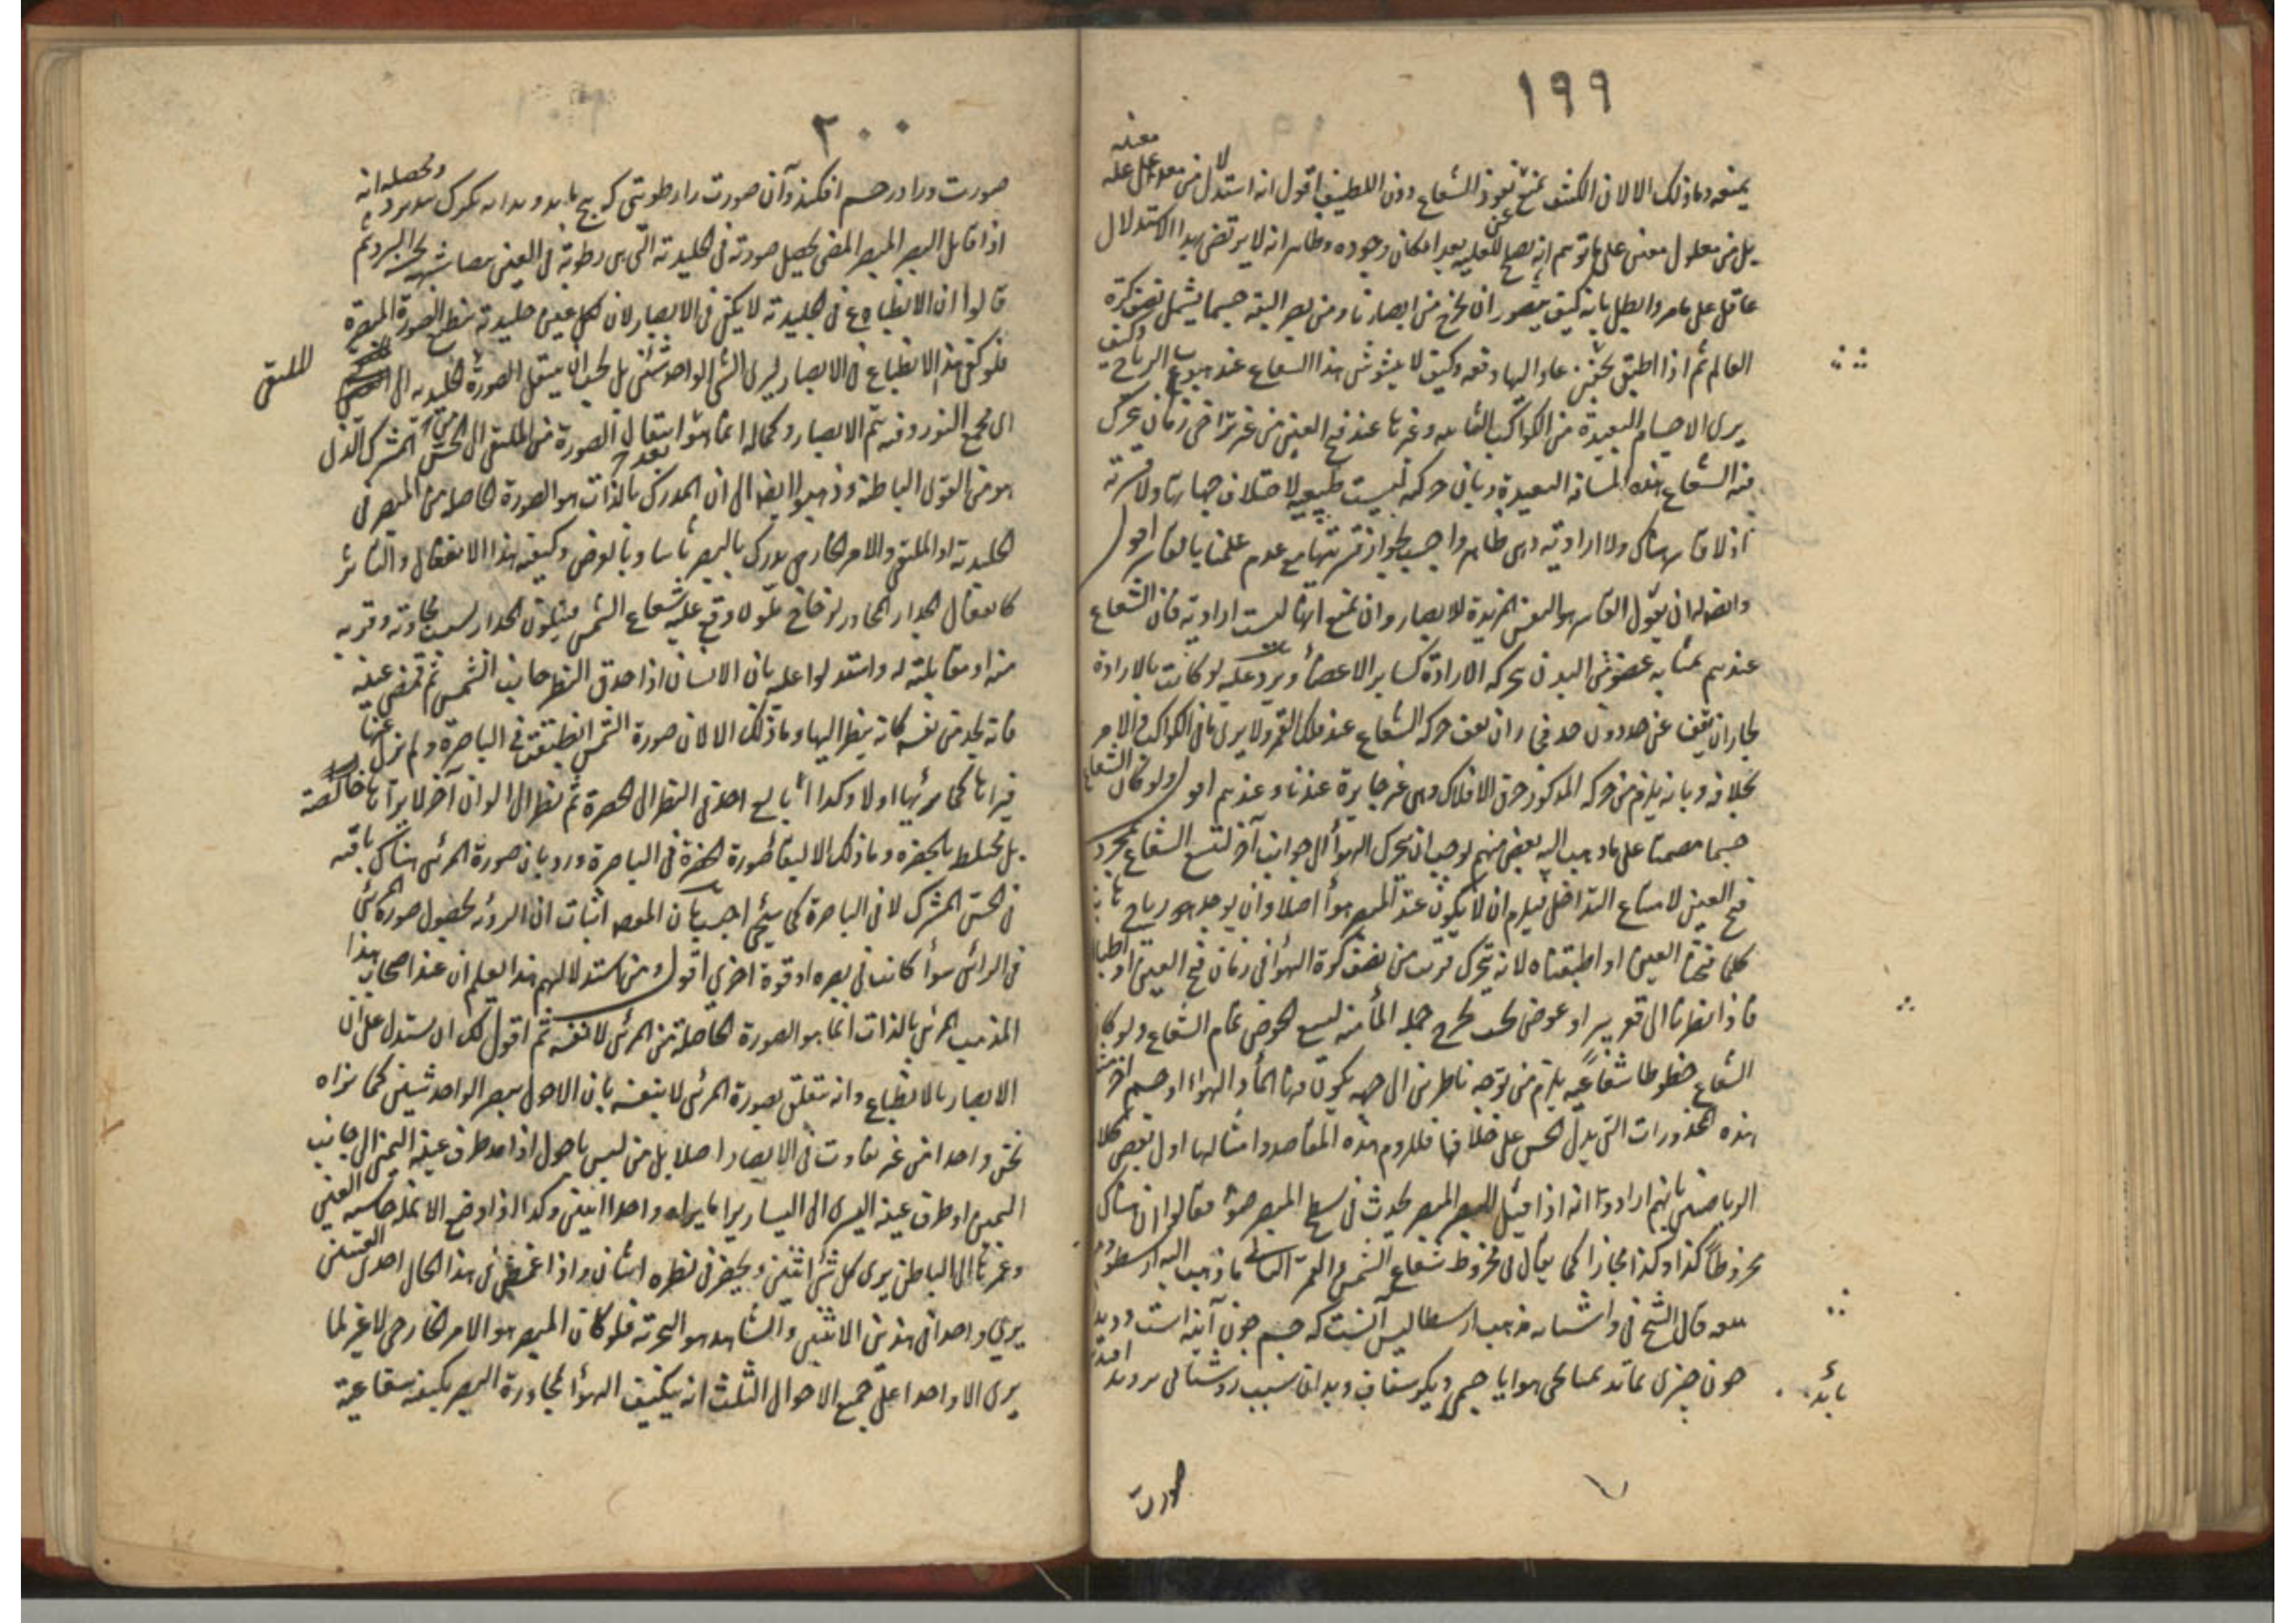 ١٩٩
يمنعه وما ذلك الا لان الكثيف يمنع نفوذ الشعاع دون اللطيف اقول انه استدل لا من
بل من معلول معين على ما توهم انه يصلح للعلية بعد امكان وجوده وظاهر انه لا يرتضى بهذا الاستدلال
عاقل على ما مر وابطل بانه كيف يتصور ان يخرج من ابصارنا ومن بصر البقة جسما يشمل نصف كرة
العالم ثم اذا اطبق عاد اليها دفعة وكيف لا يتشوش هذا الشعاع عند هبوب الرياح وكيف
يرى الاجسام البعيدة من الكواكب الثابتة وغيرها عند فتح العين من غير تراخى زمان يتحرك
فيه الشعاع هذه المسافة البعيدة وبان حركته ليست طبيعية لاختلاف جهاتها ولا قسرية
اذ لا قاسر هناك ولا ارادية وهى ظاهر واجيب بجواز قسريتها مع عدم علمنا بالقاسر اقول
وايضا له ان يقول القاسر هو النفس المريدة للابصار وان تمنع انها ليست ارادية فان الشعاع
عندهم بمثابة عضو من البدن يحركه الارادة كساير الاعضاء ويرد عليه لو كانت بالارادة
لجاز ان تقف عن حد دون حد فجاز ان يقف حركة الشعاع عند فلك القمر ولا يرى ما فى الكواكب والامر
بخلافه وبانه يلزم من حركة المذكور خرق الافلاك وهى غير جايزة عندنا وعندهم اقول ولو كان الشعاع
جسما مصمتا على ما ذهب اليه بعض منهم لوجب ان يتحرك الهواء الى جوانب آخر لتسع الشعاع بمجرد
فتح العين لامتناع التداخل فيلزم ان لا يكون عند المبصر هواء اصلا وان يوجد رياح
كلما فتحنا العين او اطبقناه لانه يتحرك قريب من نصف كرة الهواء فى زمان فتح العين او
فاذا نظرنا الى قعر بير او حوض يجب يخرج جملة الماء منه ليسع الحوض تمام الشعاع ولو كان
الشعاع خطوطا شعاعية يلزم من توجه ناظرين الى جهة يكون فيها الماء او الهواء او جسم آخر
هذه المحذورات التى يدل الحس على خلافها فللزوم هذه المقاصد وامثالها اول بعض كلام
الرياضيين بانهم ارادوا انه اذا قيل للبصر المبصر يحدث فى سطح المبصر ضوء فقالوا ان هناك
مخروطا كذا وكذا مجازا كما يقال فى مخروط شعاع الشمس والقمر الثانى ما ذهب اليه ارسطو
قال الشيخ فى مذهب ارسطاليس آنست كه چشم چون آينه است
چون چيزى بماند هوا يا جسمى ديكر شفاف وبدان سبب روشنائى
بايد
صورت
٢٠٠
صورت ورا در چشم افكند وآن صورت را رطوبتى كه ومحصله انه
اذا قابل البصر المبصر المضى يحصل صورته فى الجليدية التى هى رطوبة فى العين مشابهة البرد ثم
قالوا ان الانطباع فى الجليدية لا يكفى فى الابصار لان كل عين جليدية ينطبع الصورة المبصرة
فلو كفى هذا الانطباع فى الابصار ليرى الشئ الواحد شيئين بل يجب ان ينتقل الصورة الجليدية الى
للملتقى
اى مجمع النور وفيه يتم الابصار وكماله انما هو انتقال الصورة من الملتقى الى الحس المشترك الذى
هو من القوى الباطنة وذهبوا ايضا الى ان المدرك بالذات هو الصورة الحاصلة من المبصر فى
الجليدية او الملتقى والامر الخارجى يدرك بالبصر ثانيا وبالعرض وكيفية هذا الانفعال والتاثر
كانفعال الجدار المجاور لزجاج ملون وقع عليه شعاع الشمس فيتلون الجدار بسبب مجاورته وقربه
منه او مقابلته له واستدلوا عليه بان الانسان اذا حدق النظر جانب الشمس ثم غمض عينه
فانه يجد من نفسه كانه ينظر اليها وما ذلك الا لان صورة الشمس انطبقت فى الباصرة ولم تزل عنها
فيراها كما يريها اولا وكذا اذا بالغ احد فى النظر الى الخضرة ثم نظر الى الوان آخر لا يراها خالصة
بل مختلط بالخضرة وما ذلك الا لبقاء صورة الخضرة فى الباصرة ورد بان صورة المرئى هناك باقية
فى الحس المشترك لا فى الباصرة كما سيجئ اجيب بان المقصود اثبات ان الرؤية بحصول صورة المرئى
فى الرائى سواء كانت فى بصره او قوة اخرى اقول ومن استدلالهم هذا يعلم ان عند اصحاب هذا
المذهب المرئى بالذات انما هو الصورة الحاصلة من المرئى لا نفسه ثم اقول لك ان يستدل على ان
الابصار بالانطباع وانه يتعلق بصورة المرئى لا بنفسه بان الاحول يبصر الواحد شيئين كما نراه
نحن واحدا من غير تفاوت فى الابصار اصلا بل من ليس باحول اذا مد طرف عينه اليمنى الى جانب
اليمين او طرف عينه اليسرى الى اليسار يرا ما يراه واحدا اثنين وكذا اذا وضع الانملة العينين
وغمزها الى الباطن يرى كل شئ اثنين ويحضر فى نظره اثنان واذا غمض فى هذا الحال احدى العينين
يرى واحدا من هذين الاثنين والشاهد هو التجربة فلو كان المبصر هو الامر الخارجى لا غير لما
يرى الا واحدا على جميع الاحوال الثلث انه يتكيف الهواء لمجاورة البصر بكيفية شعاعية